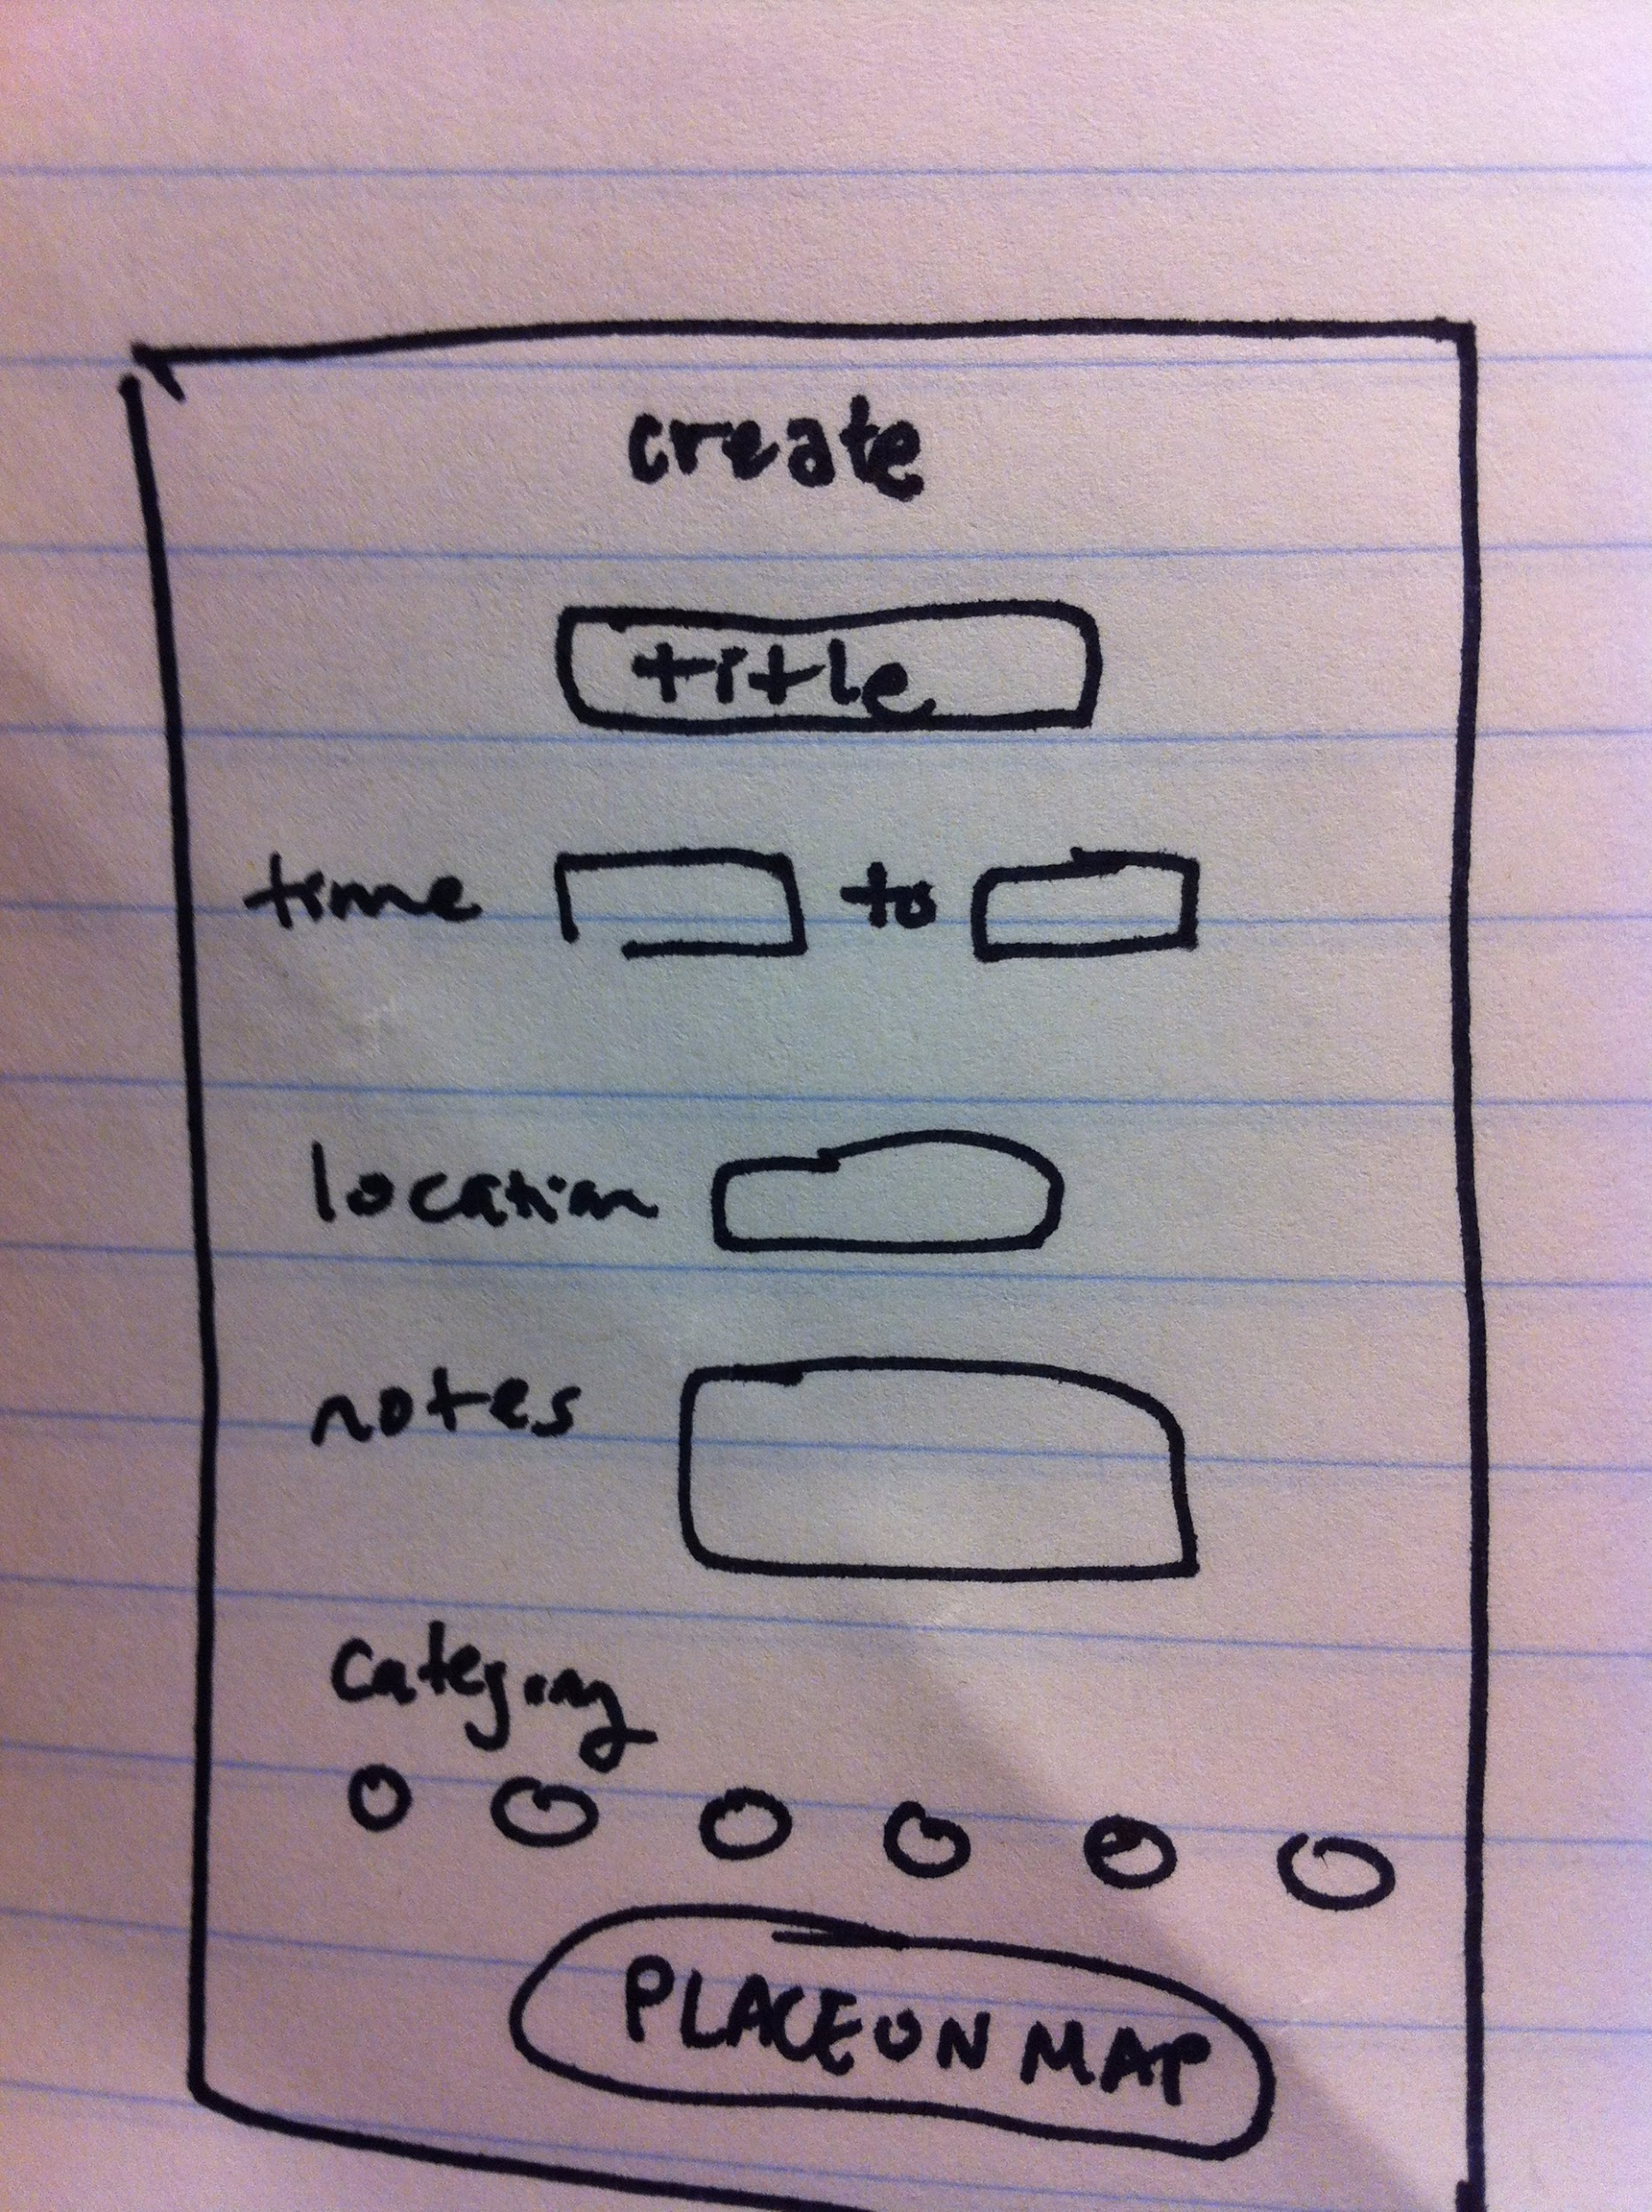 create
title
time to
location
notes
category
PLACE ON MAP